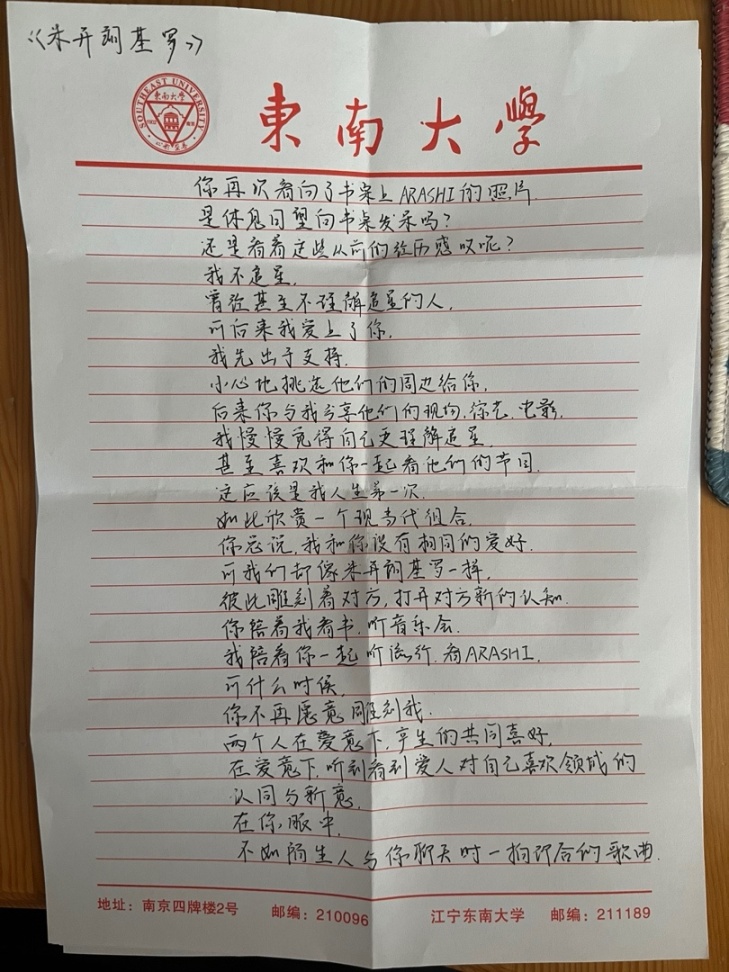 《米开朗基罗》
SOUTHEAST UNIVERSITY
東南大學
東南大學
你再次看向了书桌上ARASHI的照片.
是休息日望向书桌发呆吗?
还是看着这些从前的经历感叹呢?
我不追星,
曾经甚至不理解追星的人,
可后来我爱上了你.
我先出于支持.
小心地挑选他们的周边给你.
后来你与我分享他们的现场.综艺.电影.
我慢慢觉得自己更理解追星.
甚至喜欢和你一起看他们的节目.
这应该是我人生第一次.
如此欣赏一个现当代组合.
你总说,我和你没有相同的爱好.
可我们却像米开朗基罗一样,
彼此雕刻着对方,打开对方新的认知.
你陪着我看书.听音乐会.
我陪着你一起听流行.看ARASHI.
可什么时候,
你不再愿意雕刻我.
两个人在爱意下,产生的共同喜好,
在爱意下,听到看到爱人对自己喜欢领域的
认同与新意,
在你眼中,
不如陌生人与你聊天时一拍即合的歌曲.
地址: 南京四牌楼2号 邮编: 210096 江宁东南大学 邮编: 211189